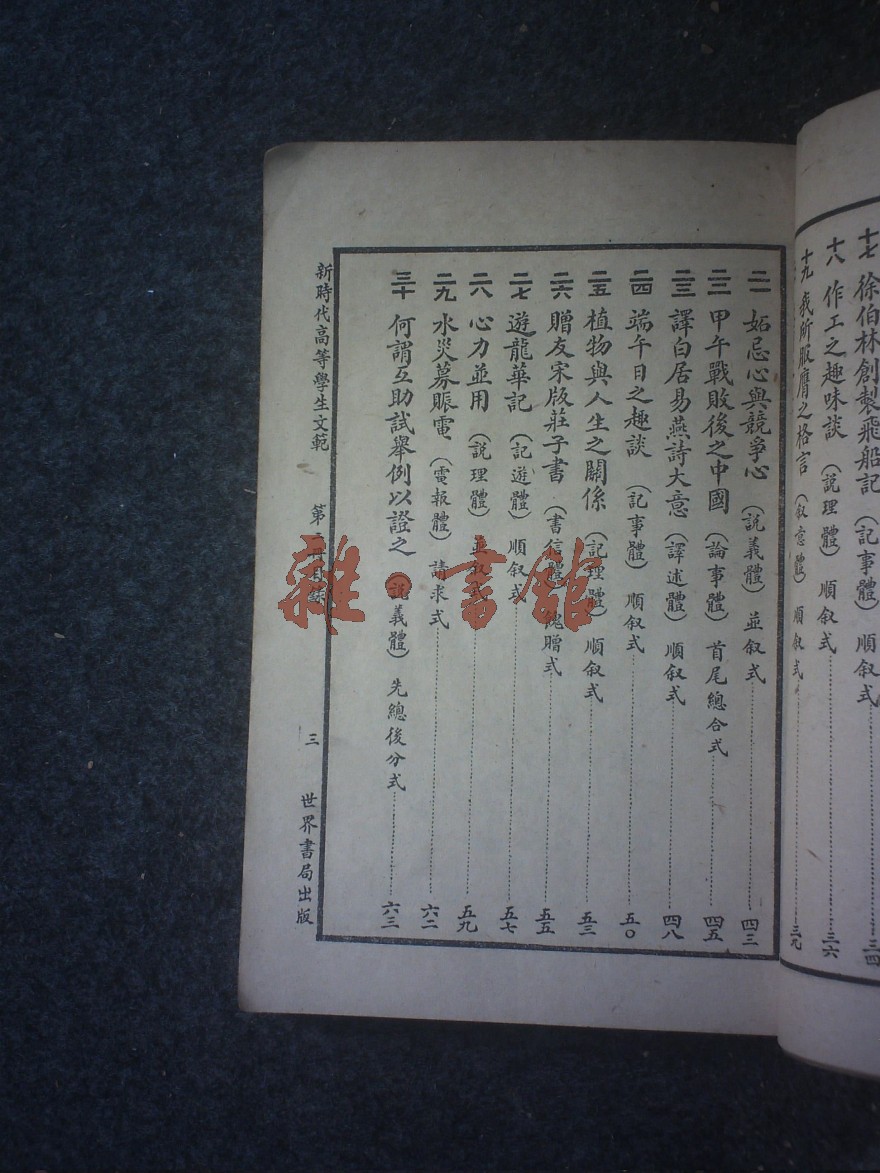 十七 徐伯林創製飛船記 (記事體) 順叙式 三四
十八 作工之趣味談 (說理體) 順叙式 三六
十九 我所服膺之格言 (叙意體) 順叙式 三九
二一 妬忌心與競爭心 (說義體) 並叙式 四三
二二 甲午戰敗後之中國 (論事體) 首尾總合式 四五
二三 譯白居易燕詩大意 (譯述體) 順叙式 四八
二四 端午日之趣談 (記事體) 順叙式 五〇
二五 植物與人生之關係 (記理體) 順叙式 五三
二六 贈友宋版莊子書 (書信體) 餽贈式 五五
二七 遊龍華記 (記遊體) 順叙式 五七
二八 心力並用 (説理體) 並叙式 五九
二九 水災募賑電 (電報體) 請求式 六二
三十 何謂互助試舉例以證之 (說義體) 先總後分式 六三
新時代高等學生文範 第 冊目錄 三 世界書局出版
雜·書館